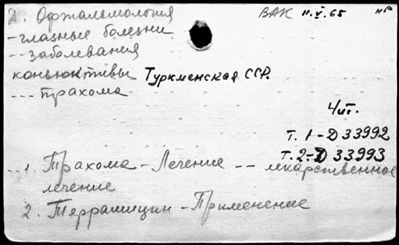 2. Офтальмология ВАК 11.V.65 нР
- глазные болезни
-- заболевания
конъюктивы Туркменская ССР.
--- трахома
Чит.
Т. 1-Д 33992
Т. 2-Д 33993
... 1. Трахома - Лечение -- лекарственное
лечение
2. Террамицин - Применение